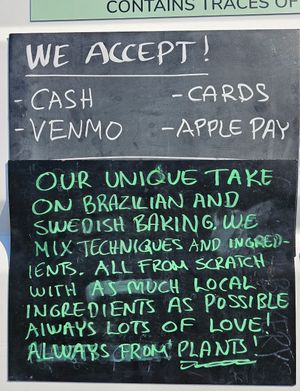 CONTAINS TRACES OF
WE ACCEPT!
- CASH - CARDS
- VENMO - APPLE PAY
OUR UNIQUE TAKE
ON BRAZILIAN AND
SWEDISH BAKING. WE
MIX TECHNIQUES AND INGRED-
IENTS. ALL FROM SCRATCH
WITH AS MUCH LOCAL
INGREDIENTS AS POSSIBLE
AlWAYS LOTS OF LOVE!
ALWAYS FROM PLANTS!